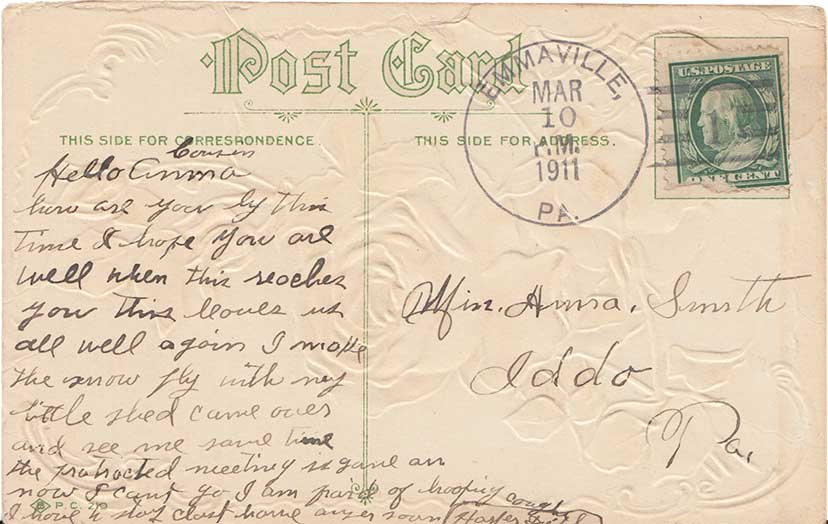 Post Card
THIS SIDE FOR CORRESPONDENCE.
THIS SIDE FOR ADDRESS.
EMMAVILLE,
MAR
10
P.M.
1911
PA.
U.S. POSTAGE
ONE CENT
Cousin
Hello Anna
how are you by this
time I hope you are
well when this reaches
you this leaves us
all well again I make
the snow fly with my
little sled came over
and see me some time
the protracted meeting is gone on
now I cant go I am fraid of hooping cough
I have to stay clost home anser soon
P.C. 210
Miss. Anna. Smith
Iddo
Pa.